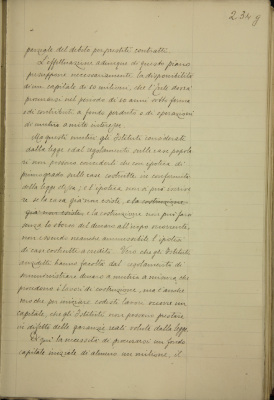 234 g
parziale del debito per prestiti contratti.
L'effettuazione adunque di questo piano
presuppone necessariamente la disponibilità
d'un capitale di 10 milioni, che l'Ente dovrà
procurarsi nel periodo di 10 anni sotto forma
di contributi a fondo perduto e di operazioni
di mutuo a mite interesse.
Ma questi mutui gli Istituti considerati
dalla legge e dal regolamento sulle case popola
ri non possono concederli che con ipoteca di
primo grado sulle case costruite in conformità
della legge stessa; e l'ipoteca non si può iscrive
re se la casa già non esiste, e la costruzione
già non esiste e la costruzione non può farsi
senza lo sborso del denaro all'uopo occorrente,
non essendo neanche ammissibile l'ipoteca
di case costruite a credito. Vero che gli Istituti
anzidetti hanno facoltà dal regolamento di
somministrare denaro a mutuo a misura che
procedono i lavori di costruzione, ma è anche
vero che per iniziare codesti lavori occorre un
capitale, che gli Istituti non possono prestare
in difetto delle garanzie reali volute dalla legge.
Di qui la necessità di procurarsi un fondo
capitale iniziale di almeno un milione; il